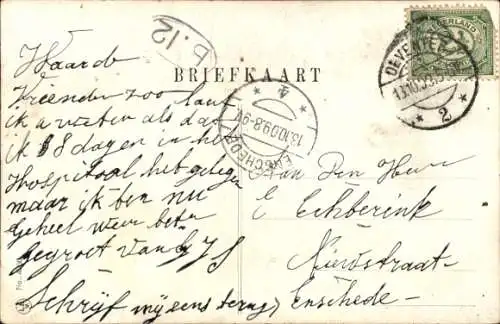 b.12
NEDERLAND
DEVENTER
2
BRIEFKAART
ENSCHEDE
13.10.09.8-9V
4
Waarde
Vriend zoo laat
ik u weten als dat
ik 18 dagen in het
Hospitaal heb gelegen
maar ik ben nu
Geheel weer beter
gegroet van
Schrijf mij eens terug
Aan Den Heer
E Echberink
Nieuwstraat
Enschede